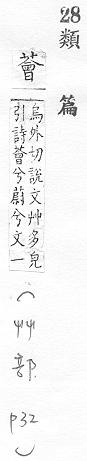 28類篇
薈
烏外切說文艸多皃
引詩薈兮蔚兮文一
(艸部 p32)